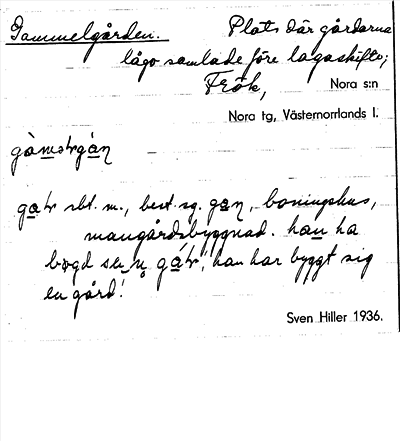 Gammelgården. Plats där gårdarna
lågo samlade före lagaskifte;
Frök, Nora s:n
Nora tg, Västernorrlands l.
går sbst. m., best. sg. gan, boningshus,
mangårdsbyggnad. han ha
bögd se går, "han har byggt sig
en gård".
Sven Hiller 1936.